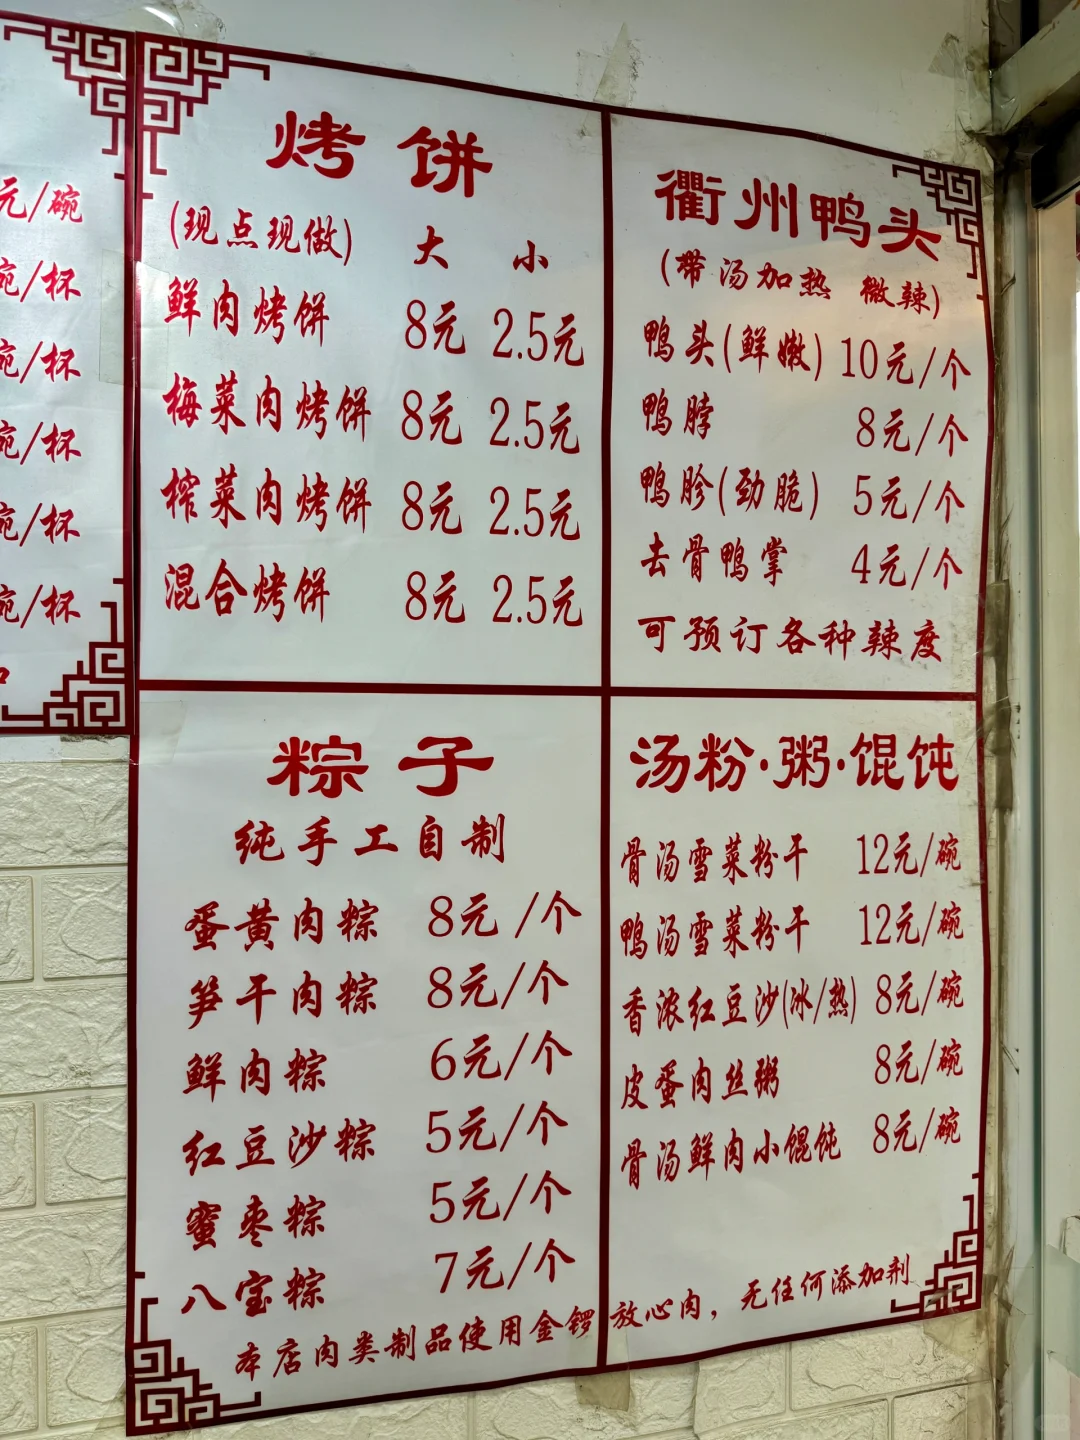 元/碗
碗/杯
碗/杯
碗/杯
碗/杯
碗/杯
烤饼
(现点现做) 大 小
鲜肉烤饼 8元 2.5元
梅菜肉烤饼 8元 2.5元
榨菜肉烤饼 8元 2.5元
混合烤饼 8元 2.5元
衢州鸭头
(带汤加热 微辣)
鸭头(鲜嫩) 10元/个
鸭脖 8元/个
鸭胗(劲脆) 5元/个
去骨鸭掌 4元/个
可预订各种辣度
粽子
纯手工自制
蛋黄肉粽 8元/个
笋干肉粽 8元/个
鲜肉粽 6元/个
红豆沙粽 5元/个
蜜枣粽 5元/个
八宝粽 7元/个
汤粉·粥·馄饨
骨汤雪菜粉干 12元/碗
鸭汤雪菜粉干 12元/碗
香浓红豆沙(冰/热) 8元/碗
皮蛋肉丝粥 8元/碗
骨汤鲜肉小馄饨 8元/碗
本店肉类制品使用金锣放心肉，无任何添加剂